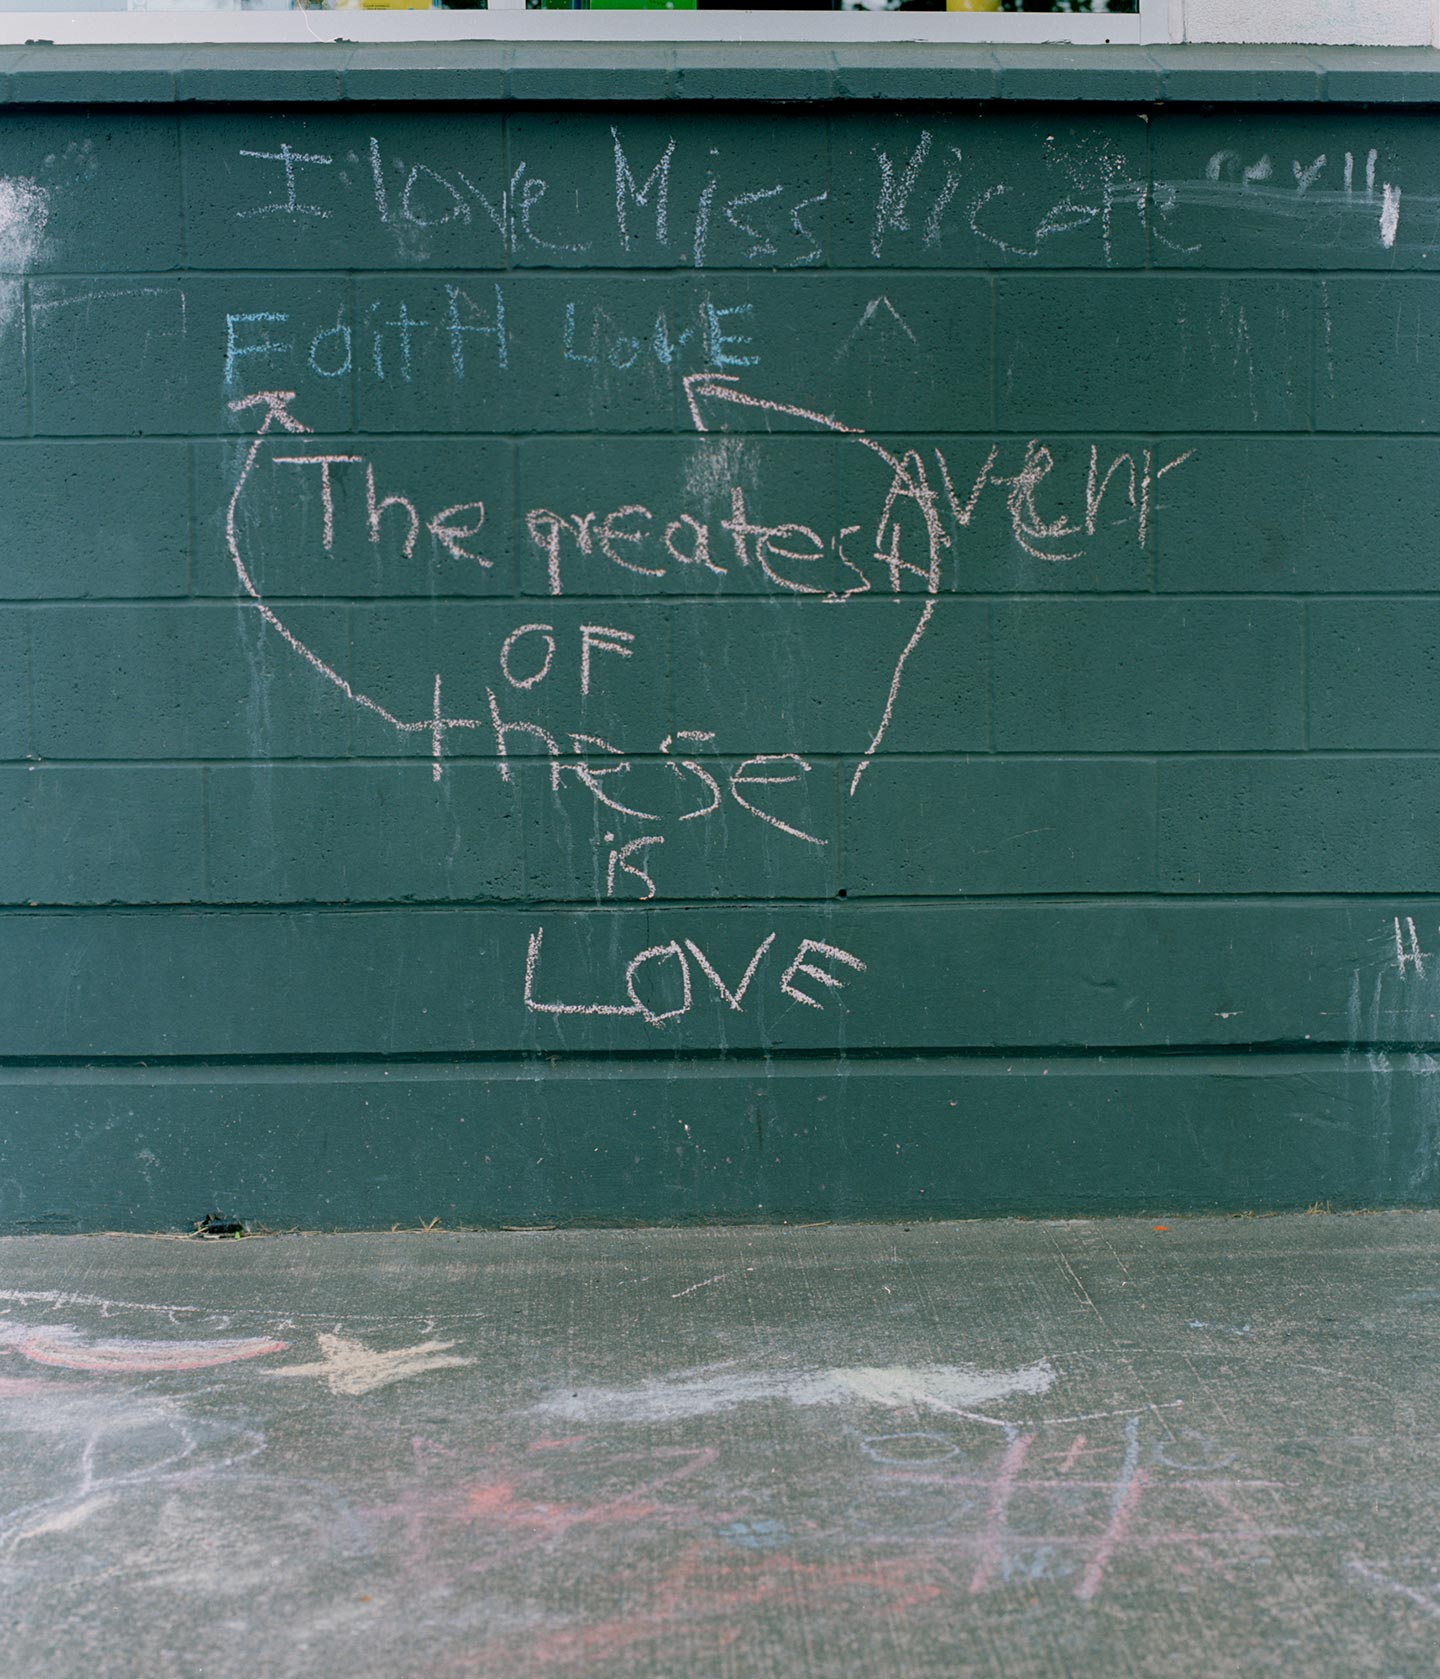 I love Miss Nicole
Faith LovE
The greatest
Avery
OF
these
is
LOVE